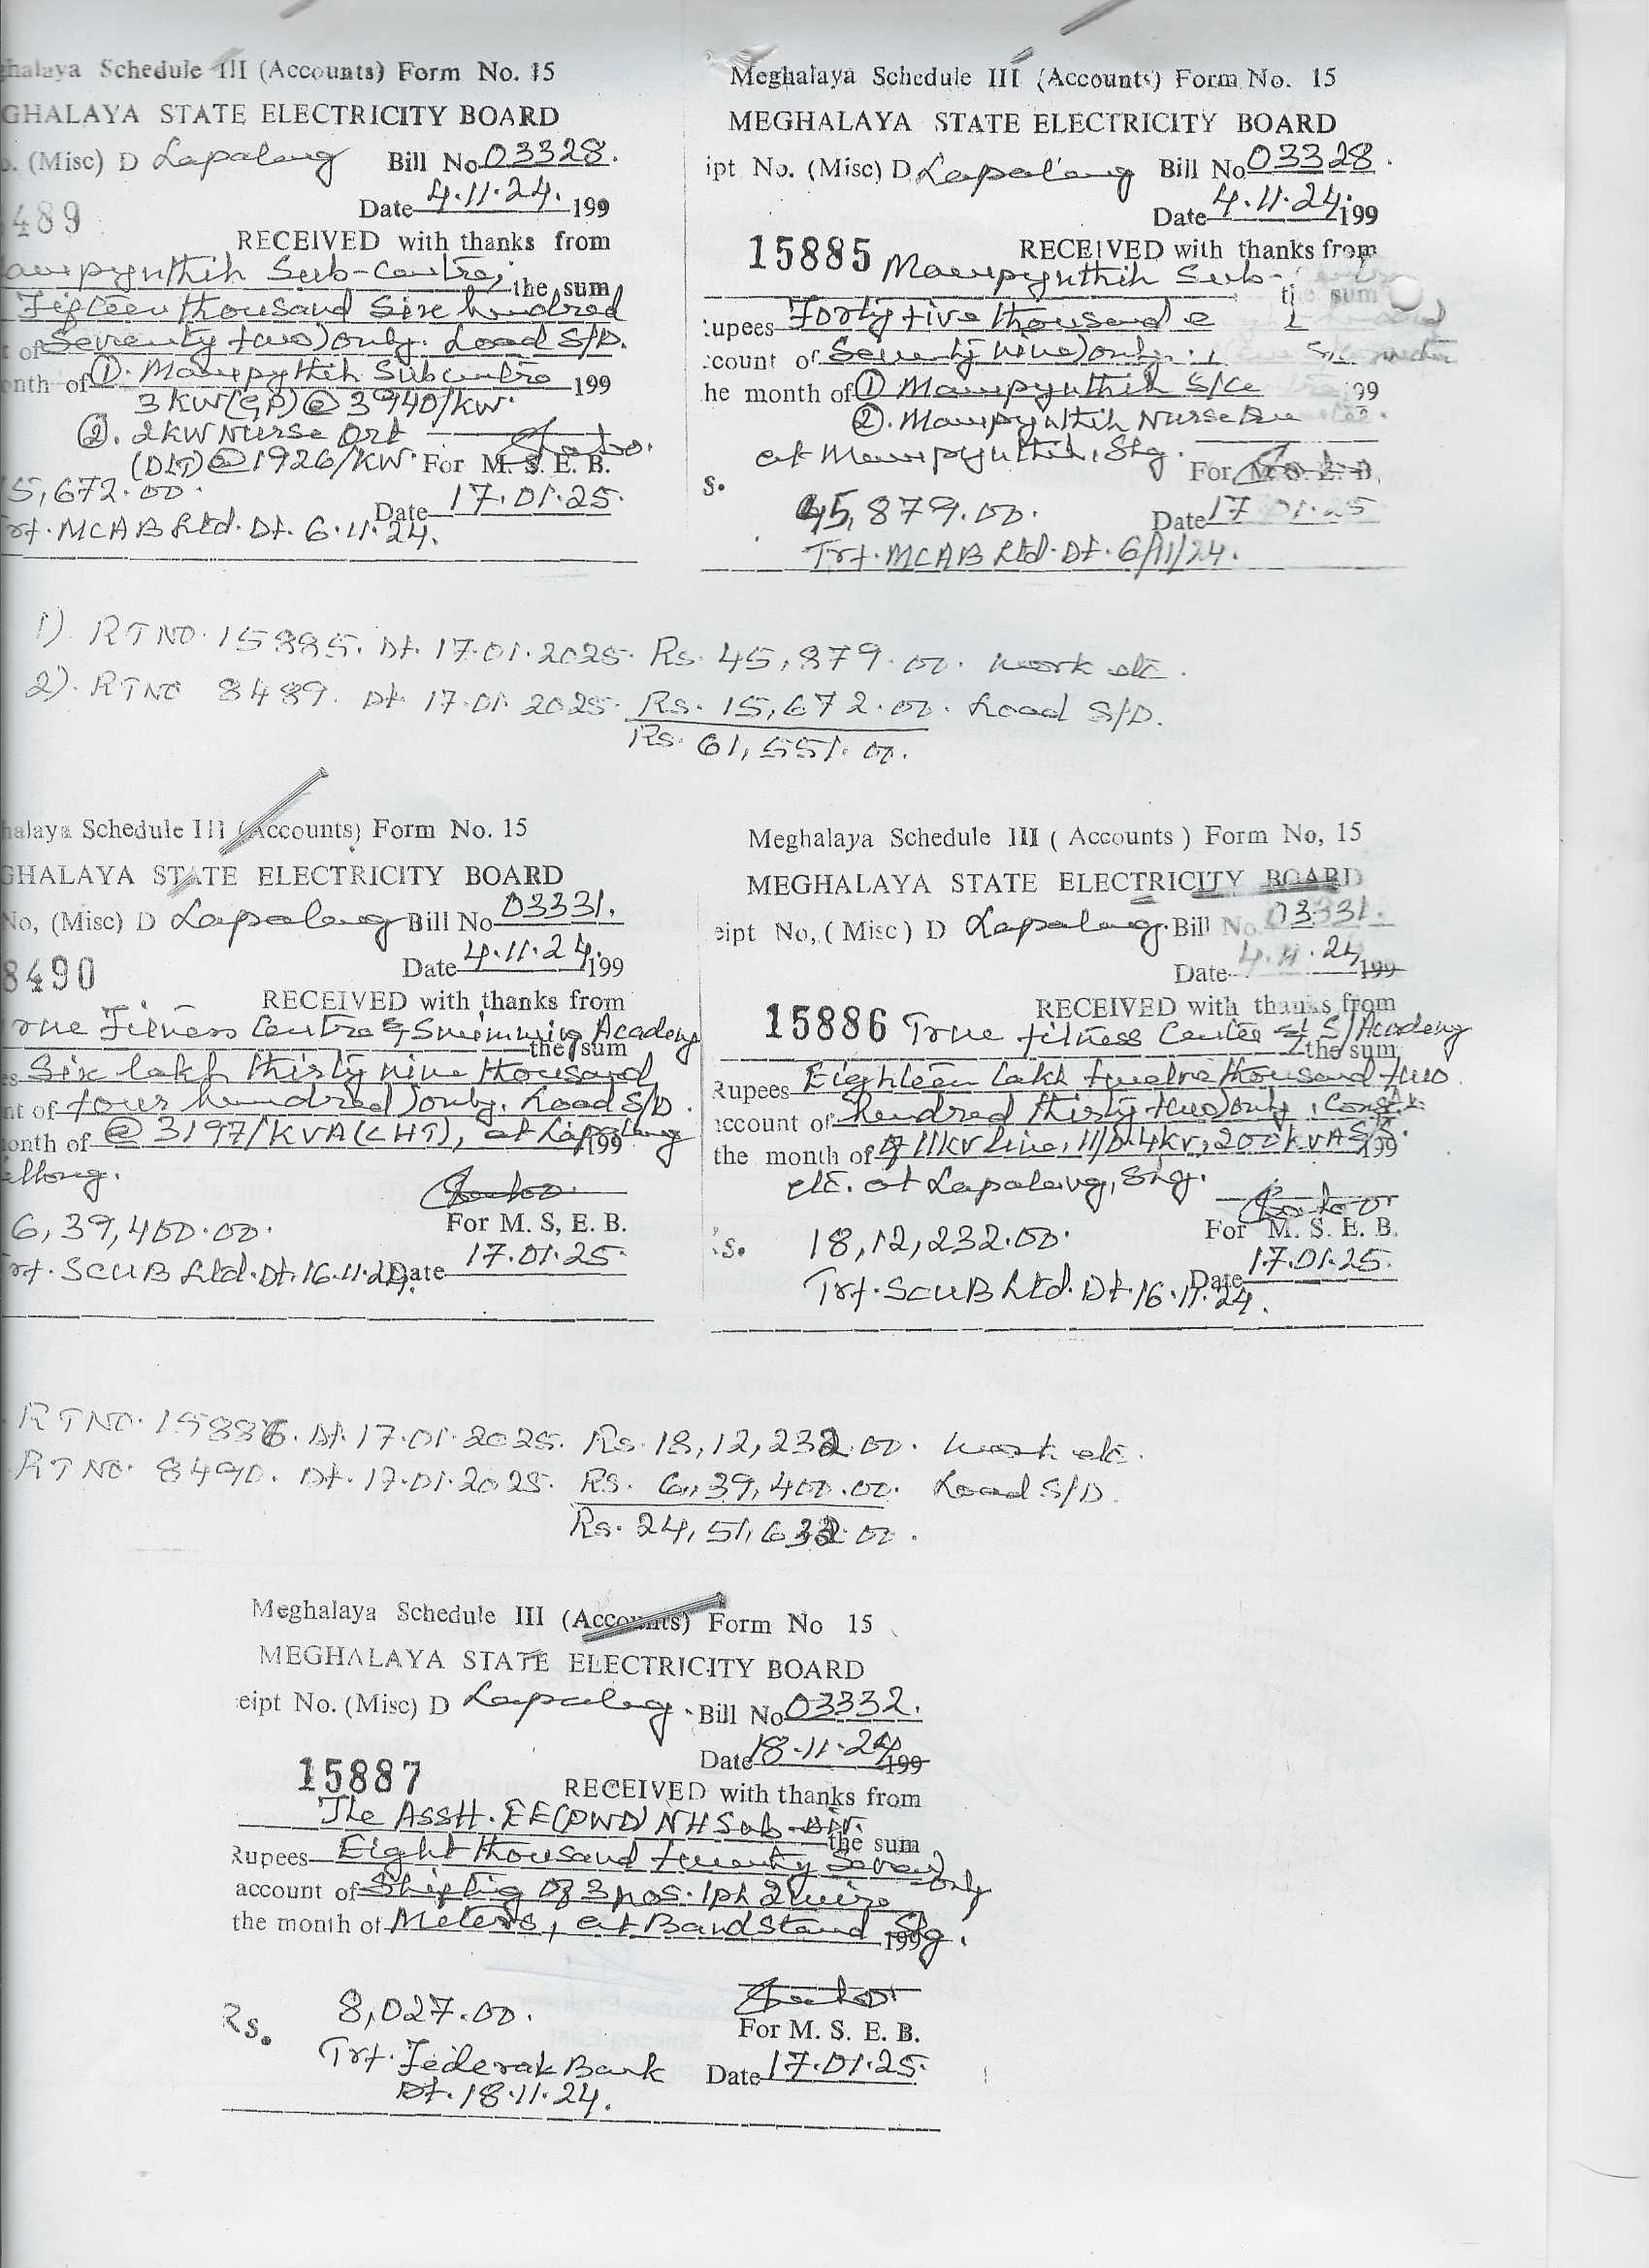 ghalaya Schedule III (Accounts) Form No. 15
GHALAYA STATE ELECTRICITY BOARD
o. (Misc) D Lapalang Bill No 03328.
Date 4.11.24. 199
489
RECEIVED with thanks from
awpynthih Sub-Centre, the sum
Fifteen thousand Six hundred
t of Seventy two) only. Load S/D.
onth of ①. Mawpythih Subcentre 199
3 KW (GP) @ 3940/KW.
②. 2KW Nurse Qrt
(DLT) @ 1926/KW. For M. S. E. B.
5,672.00.
Date 17.01.25.
Trf. MCAB Ltd. Dt. 6.11.24.
Meghalaya Schedule III (Accounts) Form No. 15
MEGHALAYA STATE ELECTRICITY BOARD
ipt No. (Misc) D Lapalang Bill No 03328.
Date 4.11.24. 199
15885 RECEIVED with thanks from
Mawpynthih Sub-
the sum
Rupees Forty five thousand e
ccount of Seventy nine) only.
he month of ① Mawpynthih S/Ce 199
②. Mawpynthih Nurse
at Mawpynthih, Shg.
For M. S. E. B.
s. 45,879.00.
Date 17.01.25
Trf. MCAB Ltd. Dt. 6/11/24.
1). RTNO. 15885. Dt. 17.01.2025. Rs. 45,879.00. work etc.
2). RTNO 8489. Dt. 17.01.2025. Rs. 15,672.00. Load S/D.
Rs. 61,551.00.
halaya Schedule III (Accounts) Form No. 15
GHALAYA STATE ELECTRICITY BOARD
No, (Misc) D Lapalang Bill No 03331.
Date 4.11.24. 199
8490
RECEIVED with thanks from
rne Fitness Centre & Swimming Academy
the sum
es Six lakh thirty nine thousand
nt of four hundred) only. Load S/D.
onth of @ 3197/KVA (LHT), at Lapalang 199
illong.
For M. S, E. B.
6,39,400.00.
17.01.25.
rf. SCUB Ltd. Dt. 16.11.24. Date
Meghalaya Schedule III ( Accounts ) Form No, 15
MEGHALAYA STATE ELECTRICITY BOARD
eipt No, ( Misc ) D Lapalang. Bill No 03331.
Date 4.11.24 199
RECEIVED with thanks from
15886 Trne fitness Centre & S/Academy
the sum
Rupees Eighteen lakh twelve thousand two
account of hundred thirty two) only, Const.
the month of of 11KV line, 11/0.4KV, 200KVA S/S. 199
etc. at Lapalang, Shg.
For M. S. E. B.
s. 18,12,232.00.
Date 17.01.25.
Trf. SCUB Ltd. Dt. 16.11.24.
RTNO. 15886. Dt. 17.01.2025. Rs. 18,12,232.00. work etc.
RTNO. 8490. Dt. 17.01.2025. Rs. 6,39,400.00. Load S/D.
Rs. 24,51,632.00.
Meghalaya Schedule III (Accounts) Form No 15
MEGHALAYA STATE ELECTRICITY BOARD
eipt No. (Misc) D Lapalang. Bill No 03332.
Date 18.11.24 199
15887
RECEIVED with thanks from
The Asstt. EE (PWD) NH Sub-Div.
the sum
Rupees Eight thousand twenty Seven) only
account of Shifting of 3 nos. 1ph 2wire
the month of Meters, at Bandstand Shg. 199
Rs. 8,027.00.
For M. S. E. B.
Trf. Federak Bank Date 17.01.25.
Dt. 18.11.24.